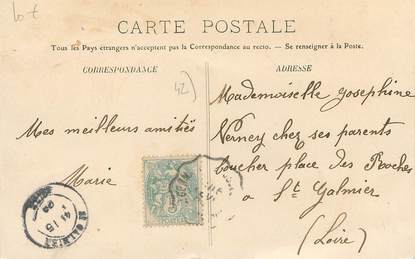 Lot
CARTE POSTALE
Tous les Pays étrangers n'acceptent pas la Correspondance au recto. — Se renseigner à la Poste.
CORRESPONDANCE
ADRESSE
42
Mes meilleurs amitiés
Marie
Mademoiselle Josephine
Verney chez ses parents
boucher place des Roches
a St Galmier
(Loire)